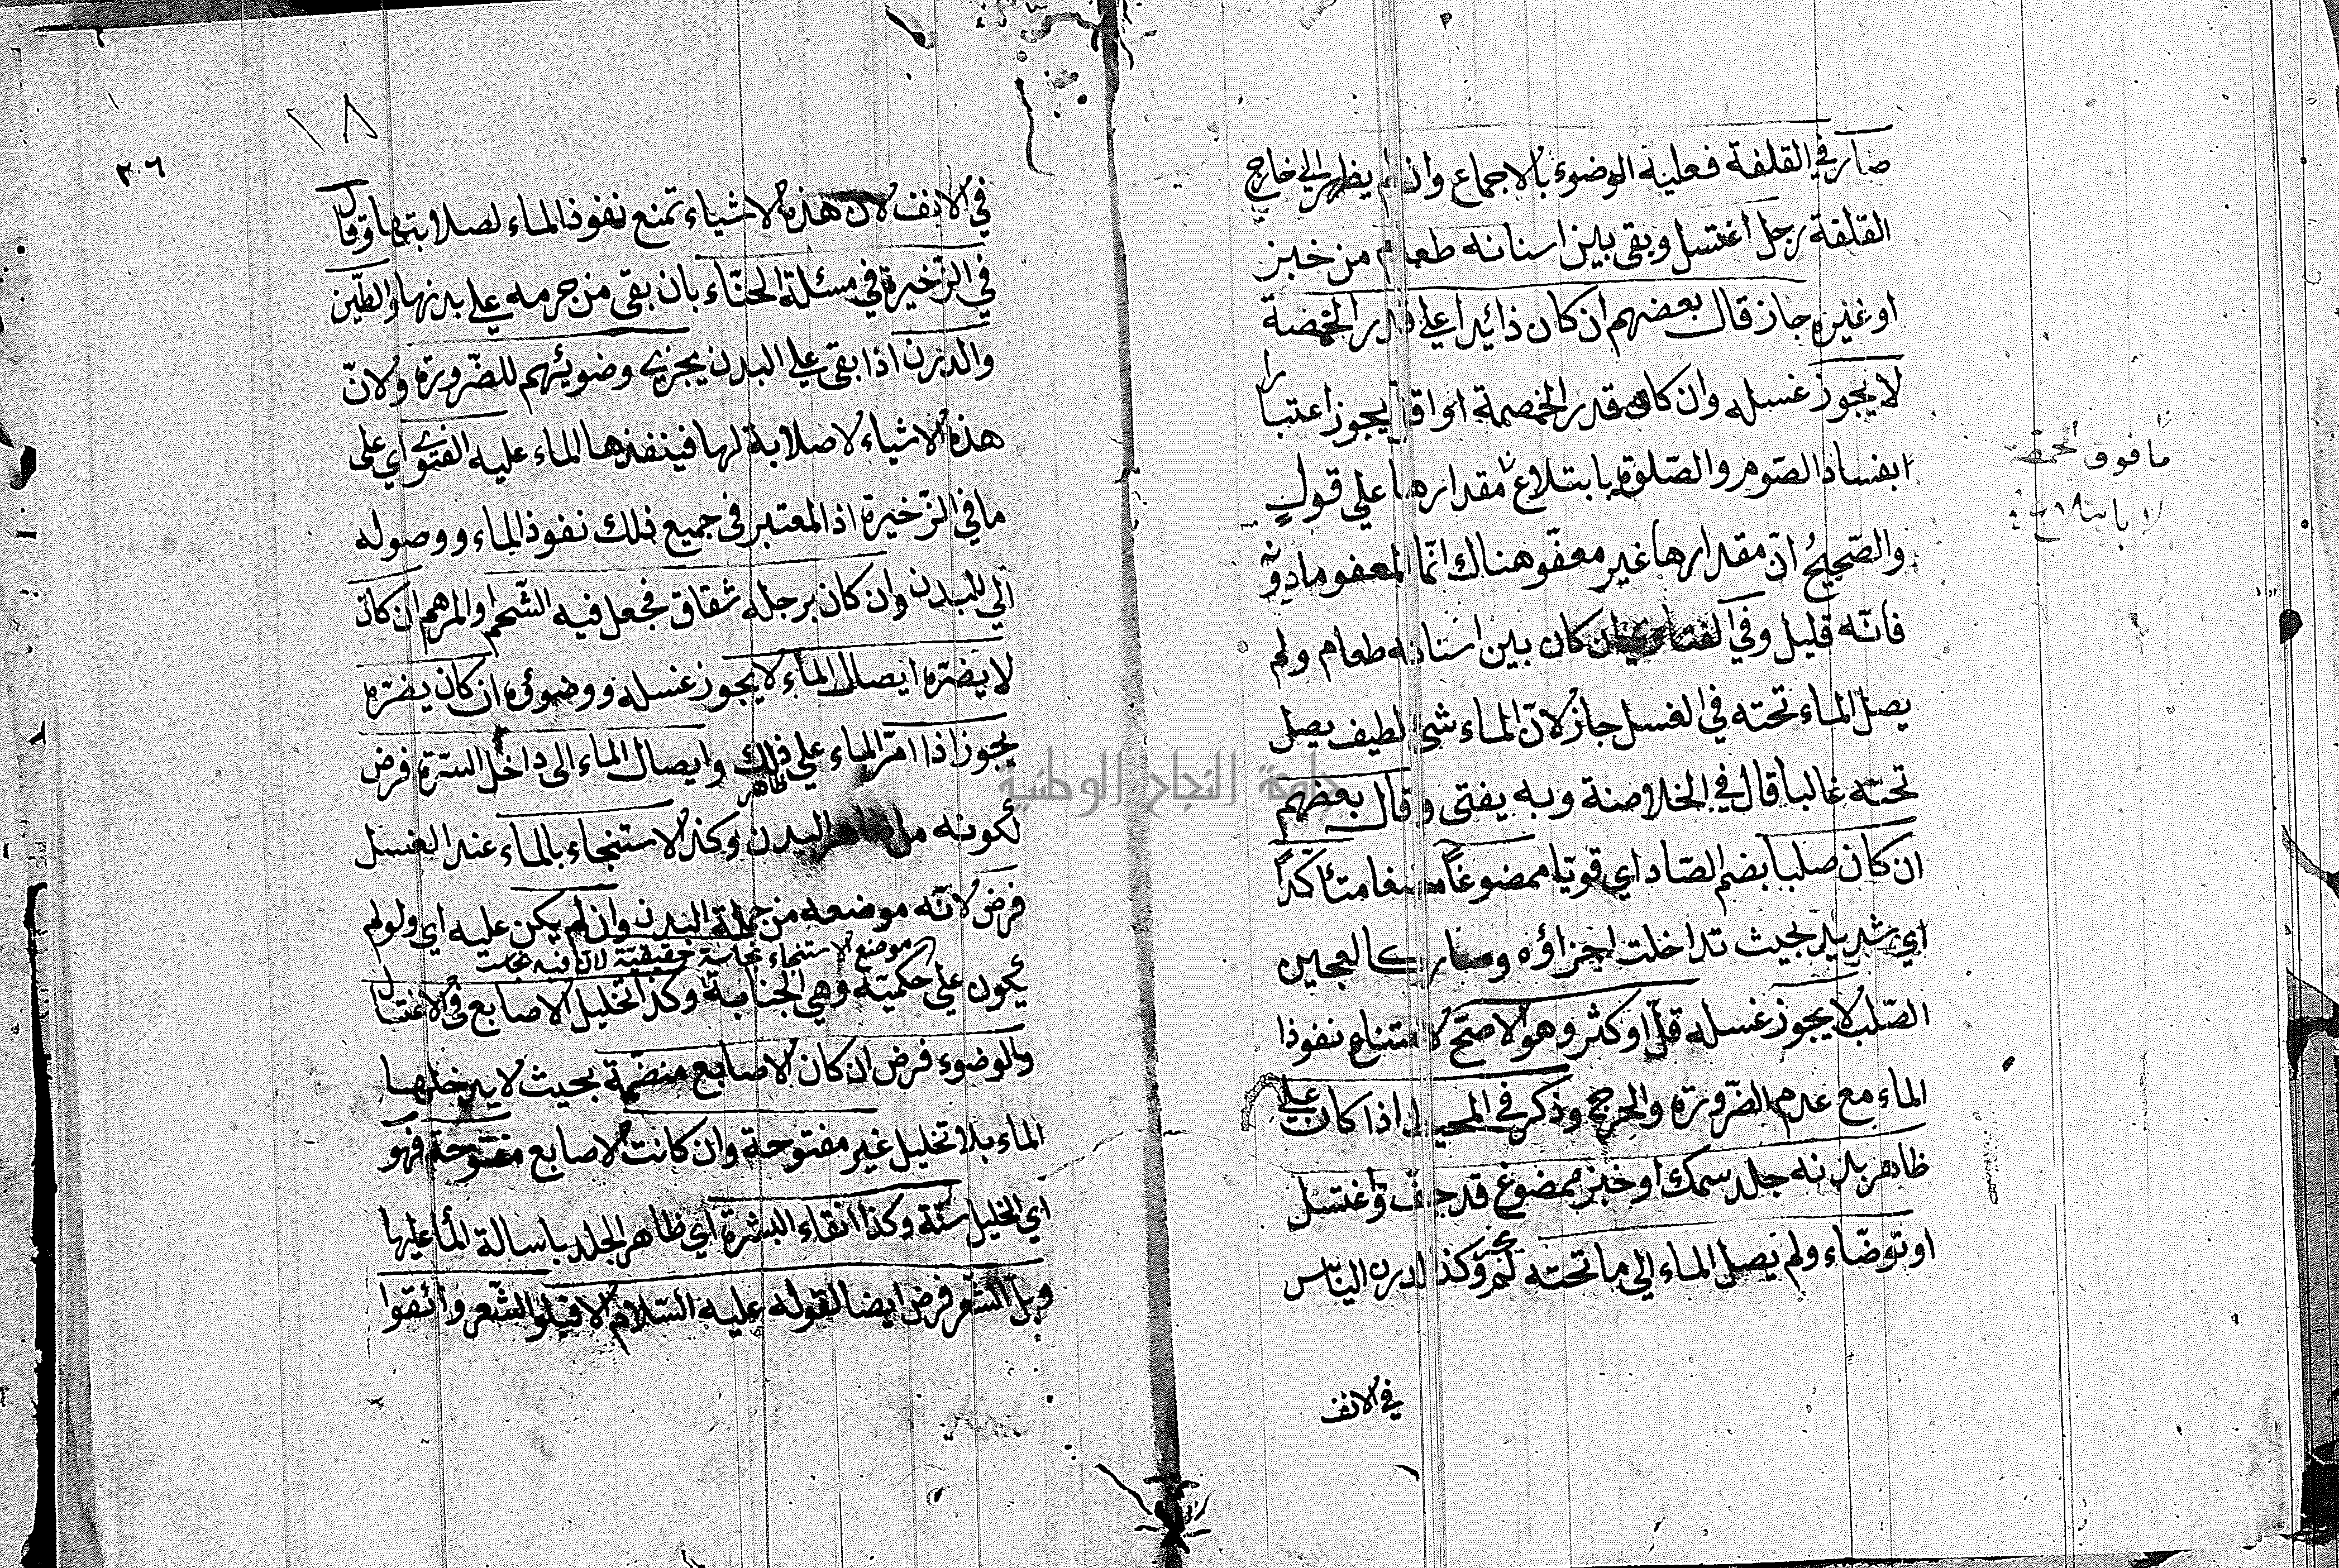 صار في القلفة فعليه الوضوء بالاجماع وان لم يظهر الى خارج
القلفة رجل اغتسل وبقى بين اسنانه طعام من خبز
او غيره جاز قال بعضهم ان كان ذائدا على قدر الخمصة
لا يجوز غسله وان كان قدر الخمصة او اقل يجوز اعتبارا
ابفساد الصوم والصلوة بابتلاع مقدارها على قول
والصحيح ان مقدارها غير معفو هناك انما المعفو ما دونه
فانه قليل وفي الفتاوى ان كان بين اسنانه طعام ولم
يصل الماء تحته في الغسل جاز لان الماء شئ لطيف يصل
تحته غالبا قال في الخلاصة وبه يفتى وقال بعضهم
ان كان صلبا بضم الصاد اي قويا ممضوغا مضغا متأكدا
اي شديد بحيث تداخلت اجزاؤه وصار كالعجين
الصلب لا يجوز غسله قل او كثر وهو الاصح لامتناع نفوذا
الماء مع عدم الضرورة والحرج وذكر في المحيط اذا كان على
ظاهر بدنه جلد سمك او خبز ممضوغ قد جف واغتسل
او توضاء ولم يصل الماء الى ما تحته لم يجز وكذا لدرن اليابس
في الانف
ما فوق الحمصة
لا بابتلاع
١٨
٣٠٦
في الانف لان هذه الاشياء تمنع نفوذ الماء لصلابتها وقال
في الزخيرة في مسئلة الحناء بان بقى من جرمه على بدنها والطين
والدرن اذا بقى على البدن يجزئ وضوئهم للضرورة ولان
هذه الاشياء لا صلابة لها فينفذها الماء عليه الفتوى اي على
ما في الزخيرة اذ المعتبر في جميع ذلك نفوذ الماء ووصوله
الى البدن وان كان برجله شقاق فجعل فيه الشحم او المرهم ان كان
لا يضره ايصال الماء لا يجوز غسله ووضوئه وان كان يضره
يجوز اذا امر الماء على ظاهر ذلك وايصال الماء الى داخل السرة فرض
لكونه من ظاهر البدن وكذا الاستنجاء بالماء عند الغسل
فرض لانه موضعه من جملة البدن وان لم يكن عليه اي ولو لم
موضع الاستنجاء نجاسة حقيقية لان فيه نجاسة
يكون على حكمية وهي الجنابة وكذا تخليل الاصابع في الاغتسال
والوضوء فرض ان كان الاصابع منضمة بحيث لا يدخلها
الماء بلا تخليل غير مفتوحة وان كانت الاصابع مفتوحة فهو
اي التخليل سنة وكذا انقاء البشرة اي ظاهر الجلد باسالة الماء عليها
وبل الشعر فرض ايضا لقوله عليه السلام الا فبلوا الشعر وانقوا
جامعة النجاح الوطنية